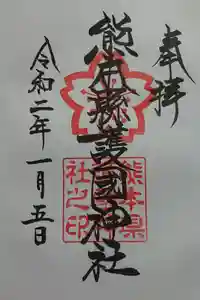 奉拝
熊本縣護國神社
熊本県
護国神
社之印
令和二年一月五日